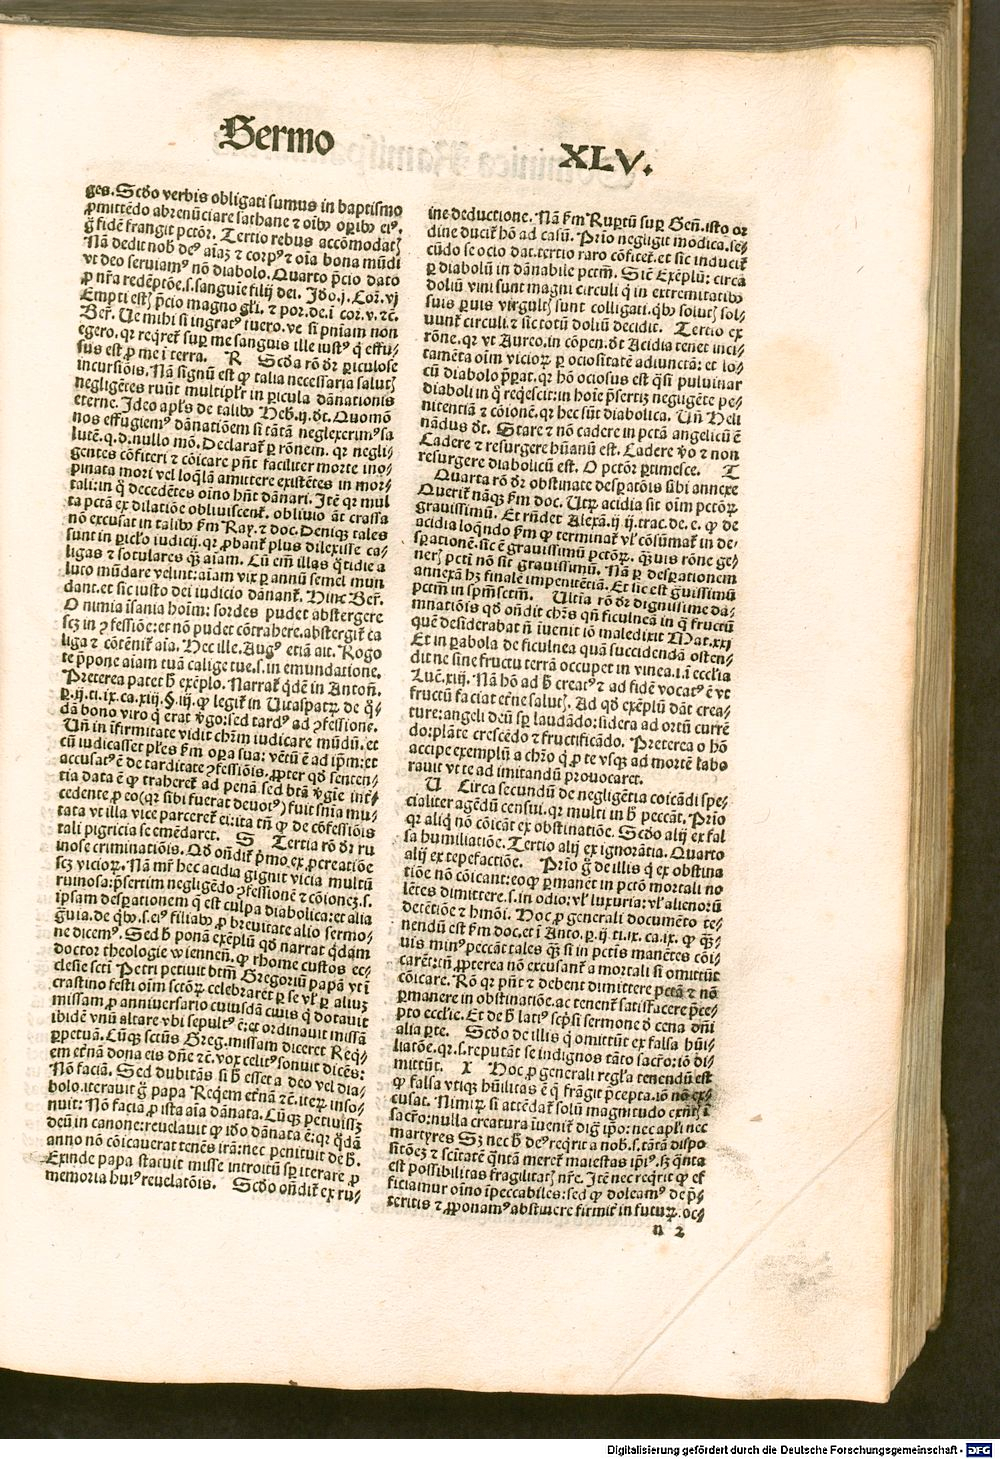 Sermo
XLV.
ges. Scdo verbis obligati sumus in baptismo
ꝓmittēdo abrenūciare sathane ⁊ oībꝰ oꝑibꝰ eiꝰ.
g̊ fidē frangit pctōr. Tertio rebus accōmodatꝭ
Nā dedit nob̄ deꝰ aīaꝫ ⁊ corpꝰ ⁊ oīa bona mūdi
vt deo seruiamꝰ nō diabolo. Quarto p̄cio dato
ꝓ nr̄a redēptōe.s.sanguīe filij dei. Jo. j. Cor. vj
Empti estꝭ p̄cio magno gl̄i. ⁊ por. de. i cor. v. ⁊c̄.
Ber̄. Ve mihi si ingratꝰ fuero. ve si pn̄iam non
egero. qr reqret̄ suꝑ me sanguis ille iustꝰ q̄ effu-
sus est ꝓ me ī terra. R Scda rō dr̄ ꝑiculose
incursiōis. Nā signū est ꝙ talia necessaria salutꝭ
negligētes ruūt multipl̄r in ꝑicula dānationis
eterne. Ideo apl̄s de talibꝰ Heb. ij. dt. Quomō
nos effugiemꝰ dānatiōem si tātā neglexerimꝰ sa
lutē. q. d. nullo mō. Declarat̄ ꝑ rōnem. qr negli-
gentes cōfiteri ⁊ cōicare pn̄t faciliter morte ino-
pinata mori vel loq̄lā amittere existētes in mor-
tali: in q̄ decedētes oīno hn̄t dānari. Itē qr mul
ta pctā ex dilatiōe obliuiscent̄. obliuio āt crassa
nō excusat in talibꝰ fm Ray. ⁊ doc. Deniqꝫ tales
sunt in ꝑicl̄o iudicij. qr ꝓbant̄ plus dilexisse ca-
ligas ⁊ sotulares qꝫ aīam. Cū em̄ illas q̄tidie a
luto mūdare velint: aīam vix ꝑ annū semel mun
dant. et sic iusto dei iudicio dānant̄. Hinc Ber̄.
O nimia īsania hoīm: sordes pudet abstergere
scꝫ in ꝯfessiōe: et nō pudet cōtrahere. abstergit̄ ca
liga ⁊ cōtēnit̄ aīa. Hec ille. Augꝰ etiā ait. Rogo
te p̄pone aīam tuā calige tue. s. in emundatione.
Preterea patet h̄ exēplo. Narrat̄ q̄dē in Antoñ.
ꝑ. ij. ti. ix. ca. xiij. §. iij. ꝙ legit̄ in Vitaspatꝝ de q̄-
dā bono viro q̄ erat v̄go: sed tardꝰ ad ꝯfessionē.
Vñ in īfirmitate vidit chr̄m iudicare mūdū. et
cū iudicasset pl̄es fm oꝑa sua: vētū ē ad ip̄m: et
accusatꝰ ē de tarditate ꝯfessiōis. ꝓpter qd̄ senten-
tia data ē ꝙ traheret̄ ad penā. sed btā v̄gīe int̄-
cedente ꝓ eo (qr sibi fuerat deuotꝰ) fuit sn̄ia mu-
tata vt illa vice parceret̄ ei: ita tn̄ ꝙ de cōfessiōis
tali pigricia se emēdaret. S Tertia rō dr̄ ru
inose criminatiōis. Qd̄ on̄dit̄ p̄mo ex ꝓcreatiōe
scꝫ vicioꝝ. Nā mr̄ hec acidia gignit vicia multū
ruinosa: p̄sertim negligēdo ꝯfessionē ⁊ cōionēꝫ. s.
ipsam desꝑationem q̄ est culpa diabolica: et alia
g̊uia. de qbꝰ. s. eiꝰ filiabꝰ ꝓ breuitate alio sermo-
ne dicemꝰ. Sed h̄ ponā exēplū qd̄ narrat q̄dam
doctor theologie wiennen̄. ꝙ rhome custos ec-
clesie sctī Petri petiuit btm̄ Gregoriū papā vt ī
crastino festi oīm sctōꝝ celebraret ꝑ se vl̄ ꝑ aliuꝫ
missam ꝓ anniuersario cuiusdā ciuis q̄ dotauit
ibidē vnū altare vbi sepultꝰ ē: et ordinauit missā
ꝑpetuā. Cūqꝫ sctūs Greg. missam diceret Req̄-
em et̄nā dona eis dn̄e ⁊c̄. vox celitꝰ sonuit dicēs:
Nō faciā. Sed dubitās si h̄ esset a deo vel dia-
bolo. iterauit g̊ papa Req̄em et̄nā ⁊c̄. iteꝝ inso-
nuit: Nō faciā ꝓ ista aīa dānata. Cūqꝫ petiuissꝫ
deū in canone: reuelauit ꝙ ido dānata ē: qr q̄dā
anno nō cōicauerat tenēs irā: nec penituit de h̄.
Exinde papa statuit misse introitū sꝑ iterare ꝓ
memoria huiꝰ reuelatōis. Scdo on̄dit̄ ex ru-
ine deductione. Nā fm Ruptū suꝑ Geñ. isto or
dine ducit̄ hō ad casū. Prīo negligit modica. se-
cūdo se ocio dat. tertio raro cōfitet̄. et sic inducit̄
ꝑ diabolū in dānabile pctm̄. Sic̄ Exēplū: circa
doliū vini sunt magni circuli q̄ in extremitatibꝰ
suis ꝑuis virgultꝭ sunt colligati. qbꝰ solutꝭ sol-
uunt̄ circuli. ⁊ sic totū doliū decidit. Tertio ex
rōne. qr vt Aureo. in cōpen. dt Acidia tenet inci-
tamēta oīm vicioꝝ ꝑ ociositatē adiuncta: et lo-
cū diabolo p̄ꝑat. qr hō ociosus est q̄si puluinar
diaboli in q̄ req̄escit: in hoīe p̄sertiꝫ negligēte pe-
nitentiā ⁊ cōionē. qr hec sūt diabolica. Vñ Heli
nādus dt. Stare ⁊ nō cadere in pctā angelicū ē
Cadere ⁊ resurgere hūanū est. Cadere v̄o ⁊ non
resurgere diabolicū est. O pctōr ꝑtimesce. T
Quarta rō dr̄ obstinate desꝑatōis sibi annexe
Querit̄ nāqꝫ fm doc. Vtꝝ acidia sit oīm pctōꝝ
grauissimū. Et rn̄det Alexā. ij. ij. trac. de. e. ꝙ de
acidia loq̄ndo fm ꝙ terminat̄ vl̄ cōsūmat̄ in de-
sꝑationē. sic ē grauissimū pctōꝝ. qꝫuis rōne ge-
nerꝭ pctī nō sit grauissimū. Nā ꝑ desꝑationem
annexā hꝫ finalē impenitētiā. Et sic est g̊uissimū
pctm̄ in spm̄sctm̄. Vltīa rō dr̄ dignissime da-
mnatiōis qd̄ on̄dit chr̄s qn̄ ficulneā in q̄ fructū
quē desiderabat nō īuenit iō maledixit Mat. xxj
Et in ꝑabola de ficulnea quā succidendā osten-
dit ne sine fructu terrā occupet in vinea. i. ī eccl̄ia
Luc̄. xiij. Nā hō ad h̄ creatꝰ ⁊ ad fidē vocatꝰ ē vt
fructū faciat et̄ne salutꝭ. Ad qd̄ exēplū dāt crea-
ture: angeli deū sꝑ laudādo: sidera ad ortū currē
do: plāte crescēdo ⁊ fructificādo. Preterea o hō
accipe exemplū a chr̄o q̄ ꝓ te vsqꝫ ad mortē labo
rauit vt te ad imitandū prouocaret.
V Circa secundū de negligētia cōicādi spe-
cialiter agēdū censui. qr multi in h̄ peccāt. Prīo
qr aliq̄ nō cōicāt ex obstinatiōe. Scdo alij ex fal
sa humiliatiōe. Tertio alij ex ignorātia. Quarto
alij ex tepefactiōe. Prīo g̊ de illis q̄ ex obstina
tiōe nō cōicant: eo ꝙ ꝑmanēt in pctō mortali no
lētes dimittere. s. in odio: vl̄ luxuria: vl̄ alienoꝝ
detētiōe ⁊ hmōi. Hoc ꝓ generali documēto te-
nendū est fm doc. et ī Anto. ꝑ. ij. ti. ix. ca. ix. ꝙ qꝫ-
uis minꝰ peccāt tales qꝫ si in pctis manētes cōi-
carēt: tn̄ ꝓpterea nō excusant̄ a mortali si omittūt
cōicare. Rō qr pn̄t ⁊ debent dimittere pctā ⁊ nō
ꝑmanere in obstinatiōe. ac tenent̄ satisfacere p̄ce-
pto eccl̄ie. Et de h̄ latiꝰ scp̄si sermone d̄ cena dn̄i
alia ꝑte. Scdo de illis q̄ omittūt ex falsa hūi-
liatōe. qr. s. reputāt se indignos tāto sacr̄o: iō di-
mittūt. X Hoc ꝓ generali regl̄a tenendū est
ꝙ falsa vtiqꝫ hūilitas ē q̄ frāgit p̄cepta. iō nō ex-
cusat. Nimiꝝ si attēdat̄ solū magnitudo exn̄tꝭ ī
sacr̄o: nulla creatura īuenit̄ dig̊ ip̄o: nec apl̄i nec
martyres Sꝫ nec h̄ deꝰ reqrit a nob. s. tātā dispo
sitōeꝫ ⁊ sctitatē q̄ntā meret̄ maiestas ip̄iꝰ. sꝫ q̄nta
est possibilitas fragilitatꝭ nr̄e. Itē nec reqrit ꝙ ef
ficiamur oīno īpeccabiles: sed ꝙ doleamꝰ de p̄-
teritis ⁊ ꝓponamꝰ abstinere firmit̄ in futuꝝ. oc-
n 2
Digitalisierung gefördert durch die Deutsche Forschungsgemeinschaft - DFG